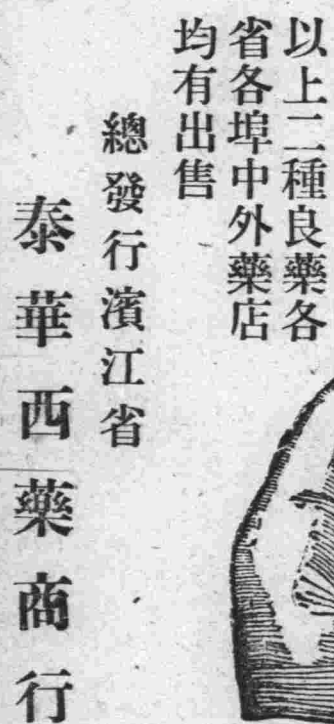 以上二種良藥各
省各埠中外藥店
均有出售
總發行濱江省
泰華西藥商行